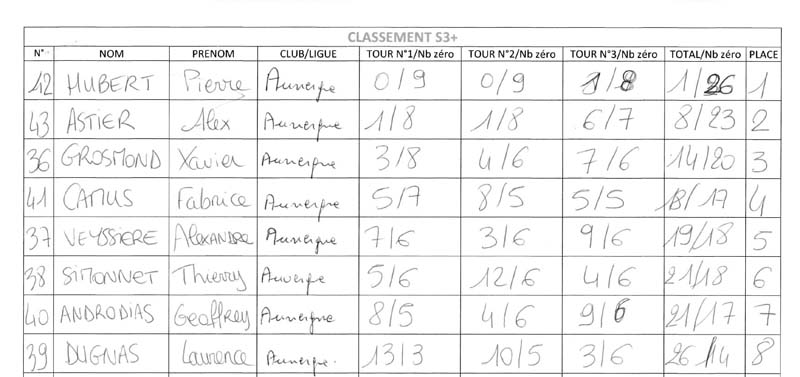 CLASSEMENT S3+
N° NOM PRENOM CLUB/LIGUE TOUR N°1/Nb zéro TOUR N°2/Nb zéro TOUR N°3/Nb zéro TOTAL/Nb zéro PLACE
42 HUBERT Pierre Auvergne 0/9 0/9 1/8 1/26 1
43 ASTIER Alex Auvergne 1/8 1/8 6/7 8/23 2
36 GROSMOND Xavier Auvergne 3/8 4/6 7/6 14/20 3
41 CAMUS Fabrice Auvergne 5/7 8/5 5/5 18/17 4
37 VEYSSIERE ALEXANDRE Auvergne 7/6 3/6 9/6 19/18 5
38 SIMONNET Thierry Auvergne 5/6 12/6 4/6 21/18 6
40 ANDRODIAS Geoffrey Auvergne 8/5 4/6 9/6 21/17 7
39 DUGNAS Laurence Auvergne. 13/3 10/5 3/6 26/14 8